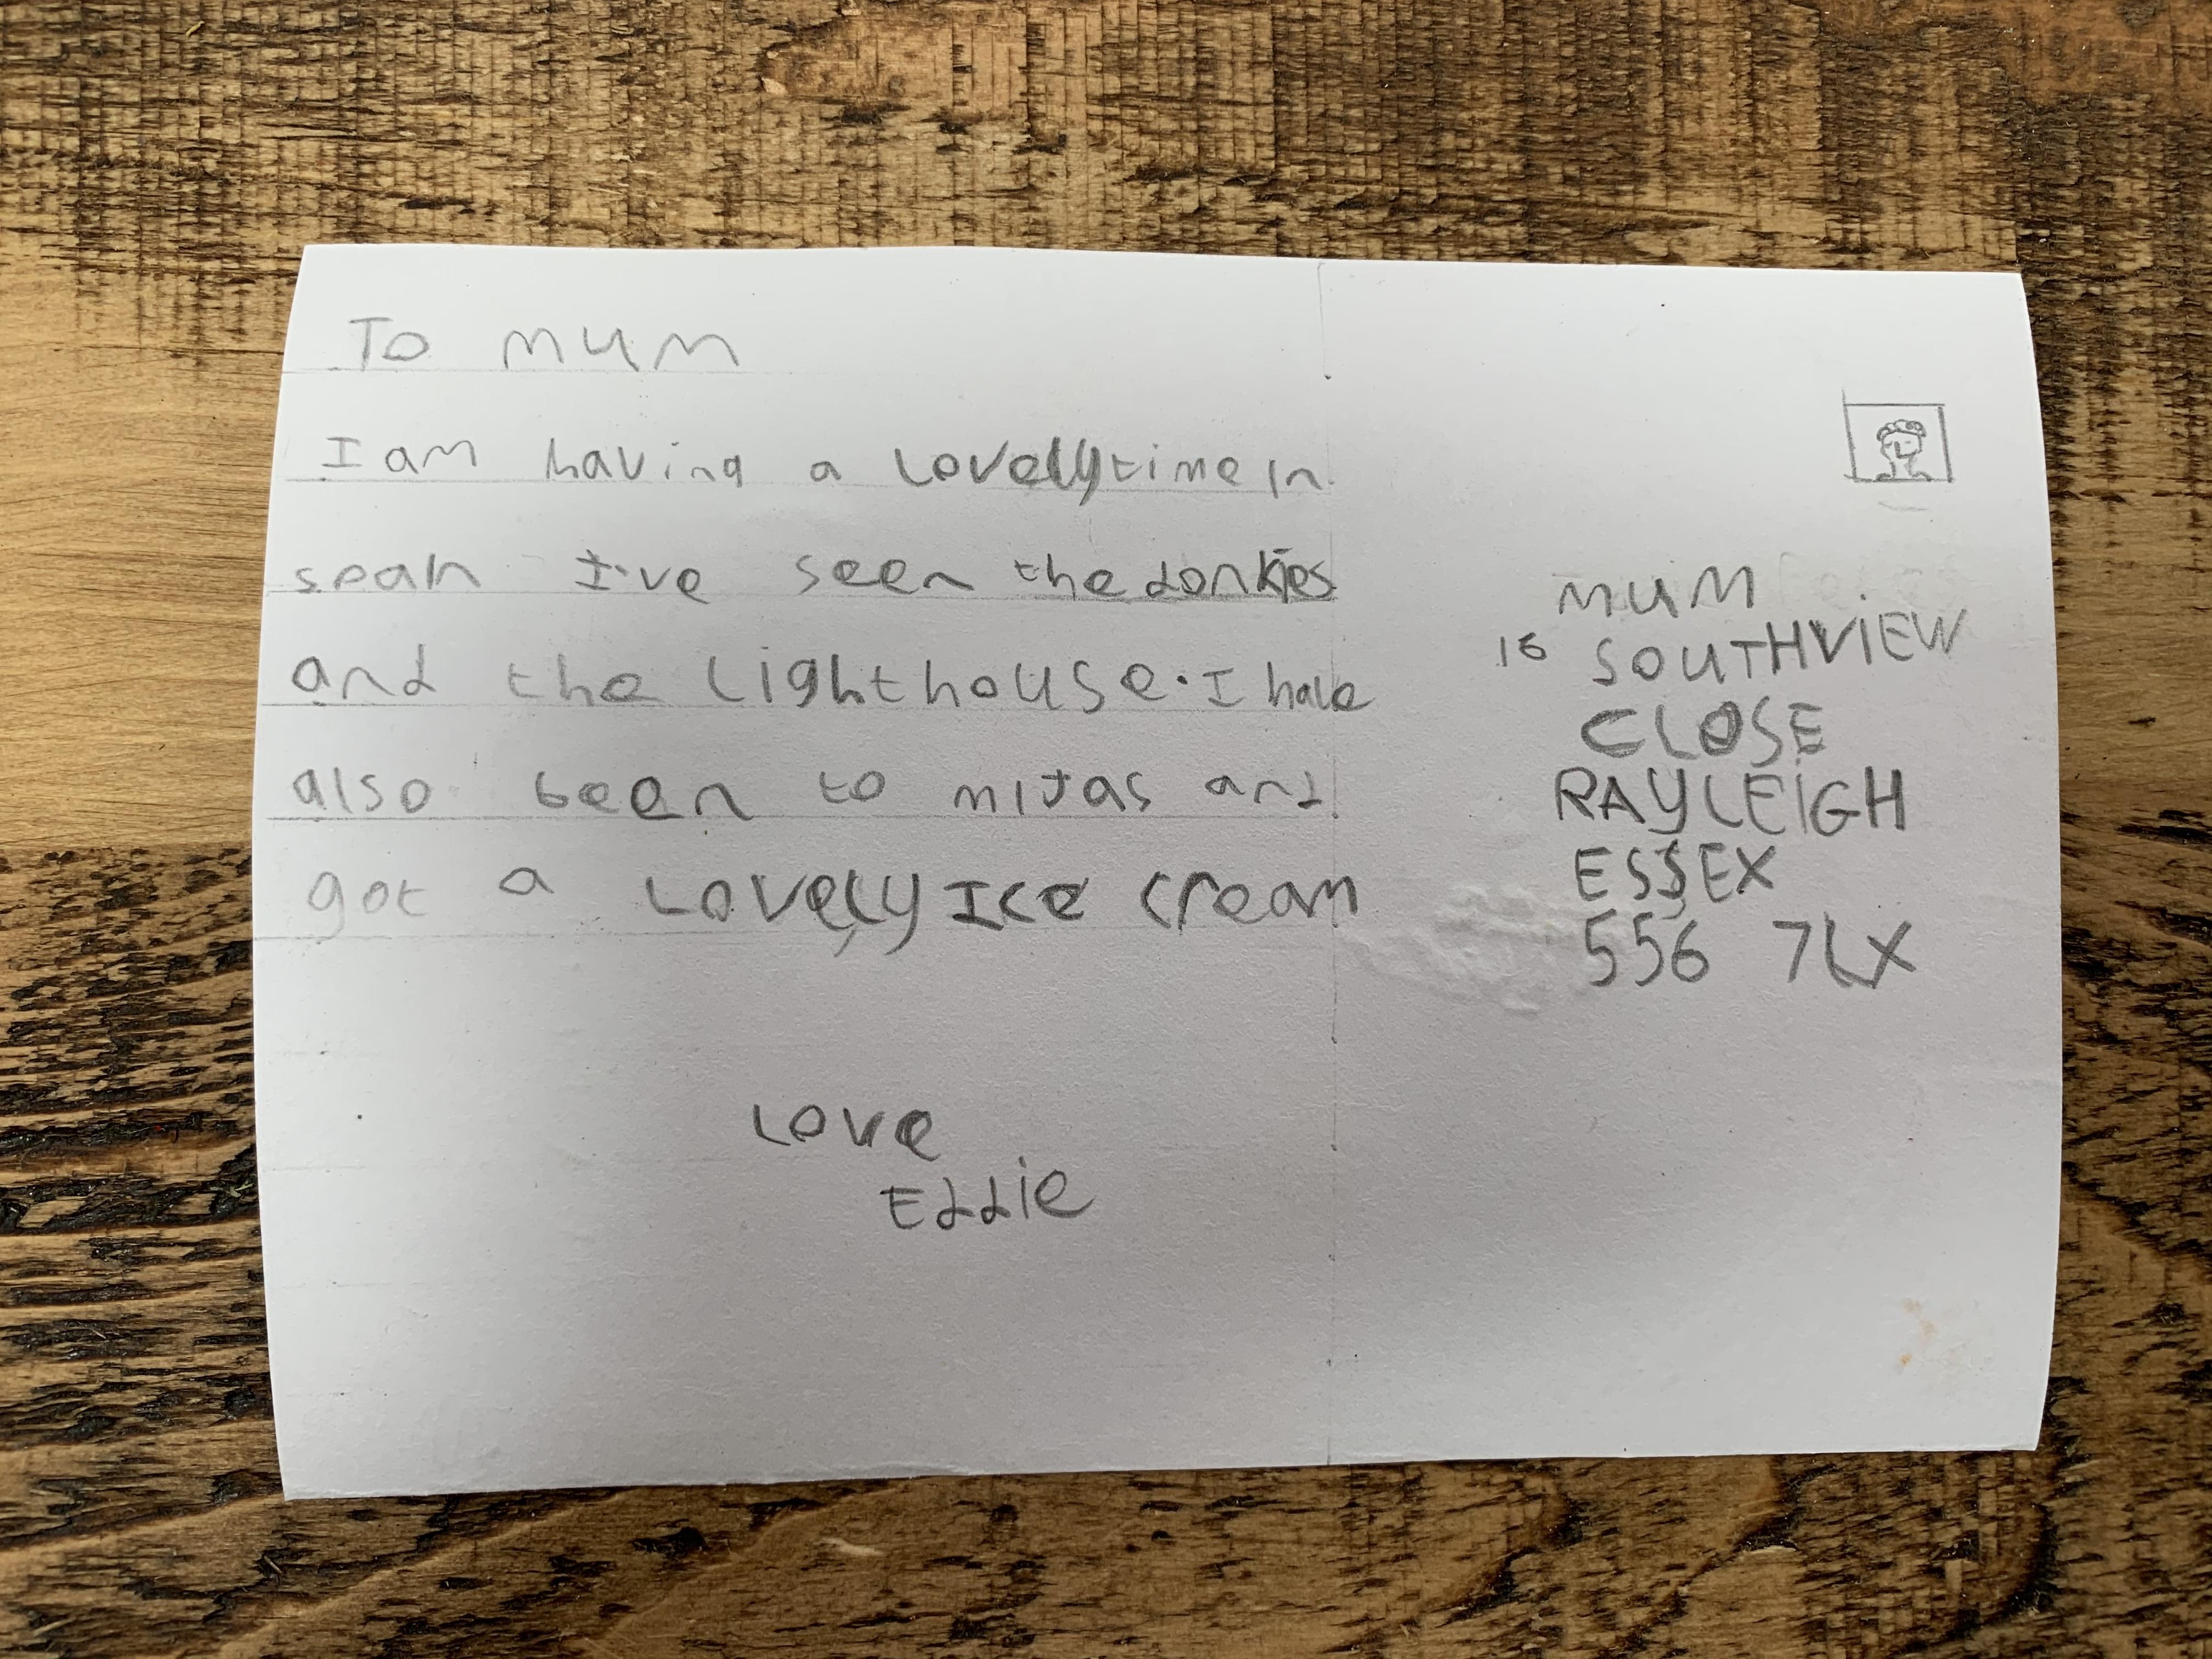 To mum
I am having a Lovely time in
spain I've seen the donkies
and the Lighthouse. I have
also been to mijas and
got a Lovely Ice cream
Love
Eddie
MUM
16 SOUTHVIEW
CLOSE
RAYLEIGH
ESSEX
SS6 7LX